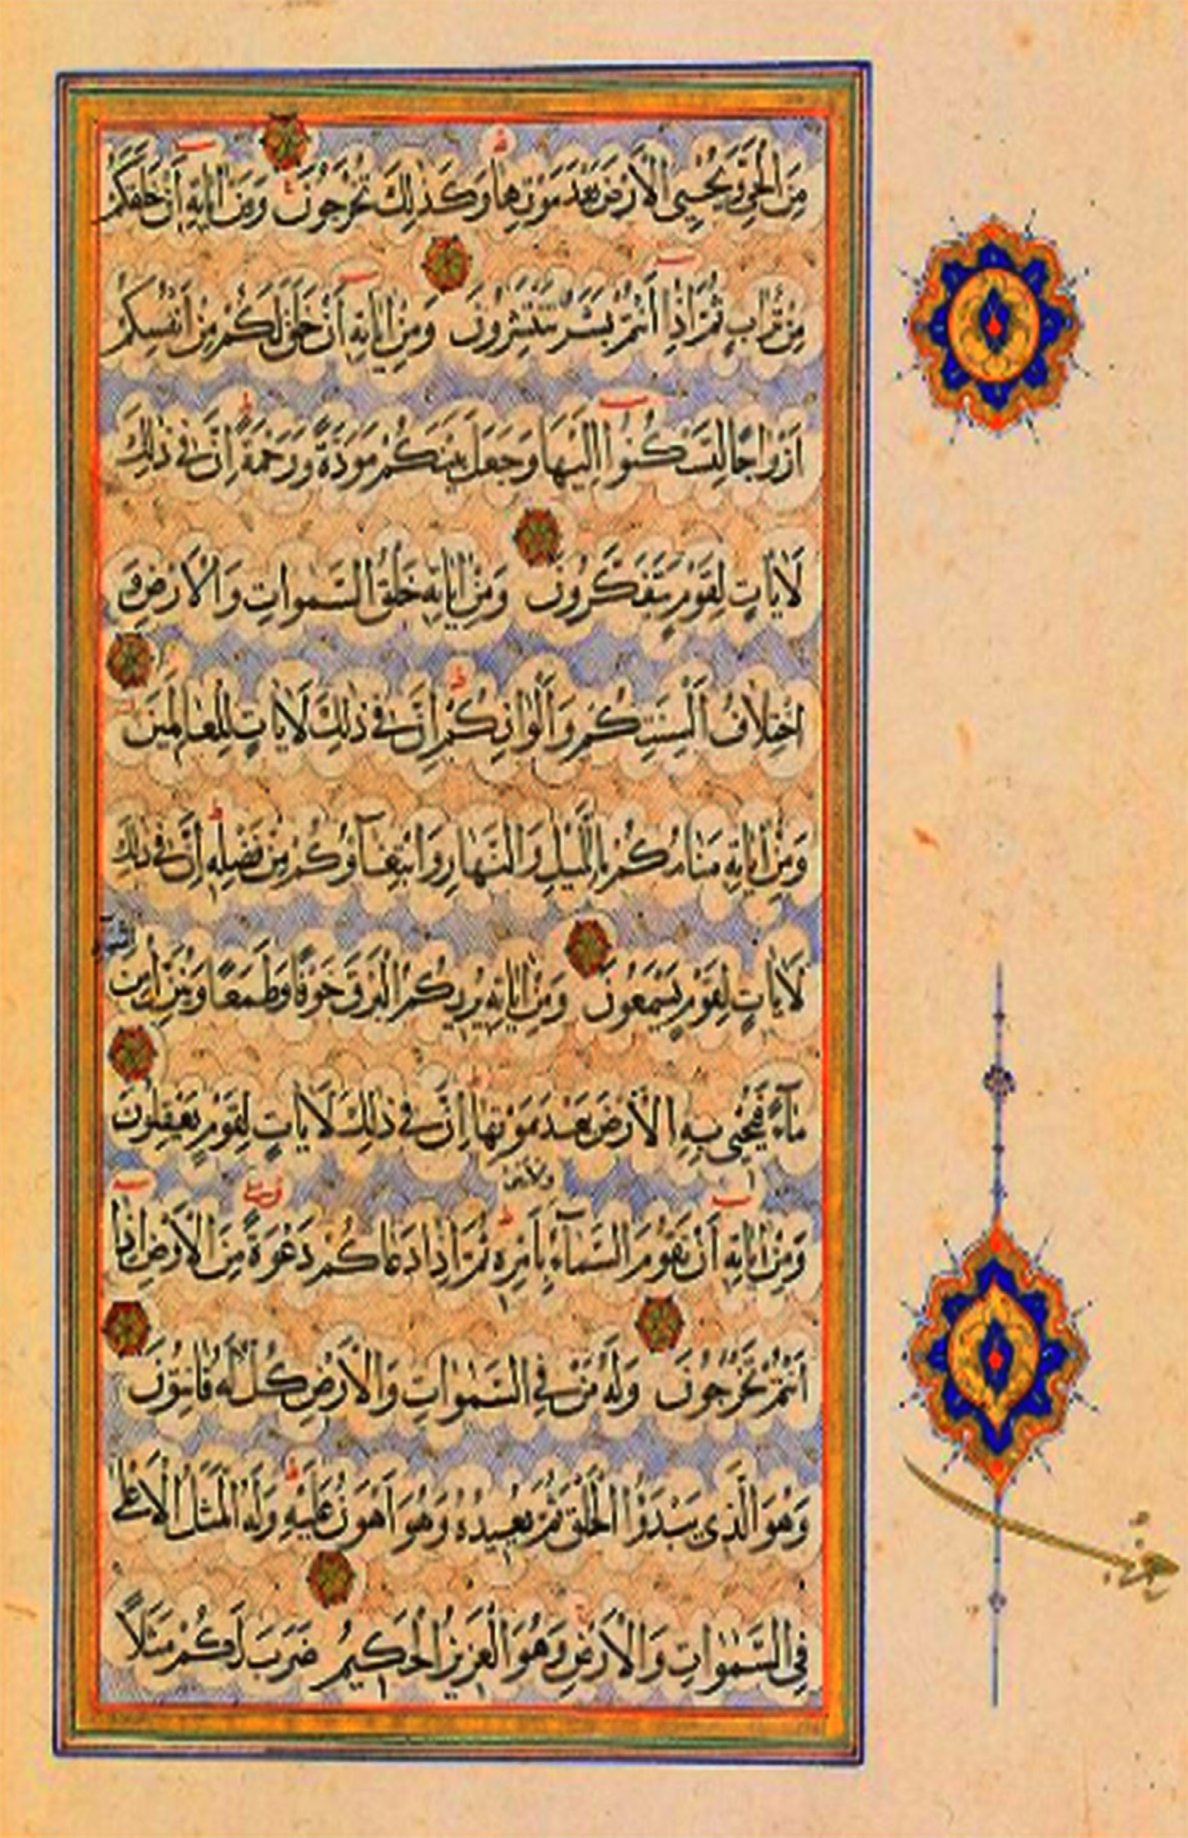 مِنَ الْحَيِّ وَيُحْيِي الْاَرْضَ بَعْدَ مَوْتِهَا وَكَذٰلِكَ تُخْرَجُونَ وَمِنْ اٰيَاتِهٖ اَنْ خَلَقَكُمْ
مِنْ تُرَابٍ ثُمَّ اِذَا اَنْتُمْ بَشَرٌ تَنْتَشِرُونَ وَمِنْ اٰيَاتِهٖ اَنْ خَلَقَ لَكُمْ مِنْ اَنْفُسِكُمْ
اَزْوَاجًا لِتَسْكُنُوا اِلَيْهَا وَجَعَلَ بَيْنَكُمْ مَوَدَّةً وَرَحْمَةً اِنَّ فِي ذٰلِكَ
لَاٰيَاتٍ لِقَوْمٍ يَتَفَكَّرُونَ وَمِنْ اٰيَاتِهٖ خَلْقُ السَّمٰوَاتِ وَالْاَرْضِ وَ
اخْتِلَافُ اَلْسِنَتِكُمْ وَاَلْوَانِكُمْ اِنَّ فِي ذٰلِكَ لَاٰيَاتٍ لِلْعَالِمِينَ
وَمِنْ اٰيَاتِهٖ مَنَامُكُمْ بِاللَّيْلِ وَالنَّهَارِ وَابْتِغَآؤُكُمْ مِنْ فَضْلِهٖ اِنَّ فِي ذٰلِكَ
لَاٰيَاتٍ لِقَوْمٍ يَسْمَعُونَ وَمِنْ اٰيَاتِهٖ يُرِيكُمُ الْبَرْقَ خَوْفًا وَطَمَعًا وَيُنَزِّلُ مِنَ السَّمَآءِ
مَآءً فَيُحْيِي بِهِ الْاَرْضَ بَعْدَ مَوْتِهَا اِنَّ فِي ذٰلِكَ لَاٰيَاتٍ لِقَوْمٍ يَعْقِلُونَ
وَمِنْ اٰيَاتِهٖ اَنْ تَقُومَ السَّمَآءُ وَالْاَرْضُ بِاَمْرِهٖ ثُمَّ اِذَا دَعَاكُمْ دَعْوَةً مِنَ الْاَرْضِ اِذَا
اَنْتُمْ تَخْرُجُونَ وَلَهُ مَنْ فِي السَّمٰوَاتِ وَالْاَرْضِ كُلٌّ لَهُ قَانِتُونَ
وَهُوَ الَّذِي يَبْدَؤُا الْخَلْقَ ثُمَّ يُعِيدُهُ وَهُوَ اَهْوَنُ عَلَيْهِ وَلَهُ الْمَثَلُ الْاَعْلٰى
فِي السَّمٰوَاتِ وَالْاَرْضِ وَهُوَ الْعَزِيزُ الْحَكِيمُ ضَرَبَ لَكُمْ مَثَلًا
حزب